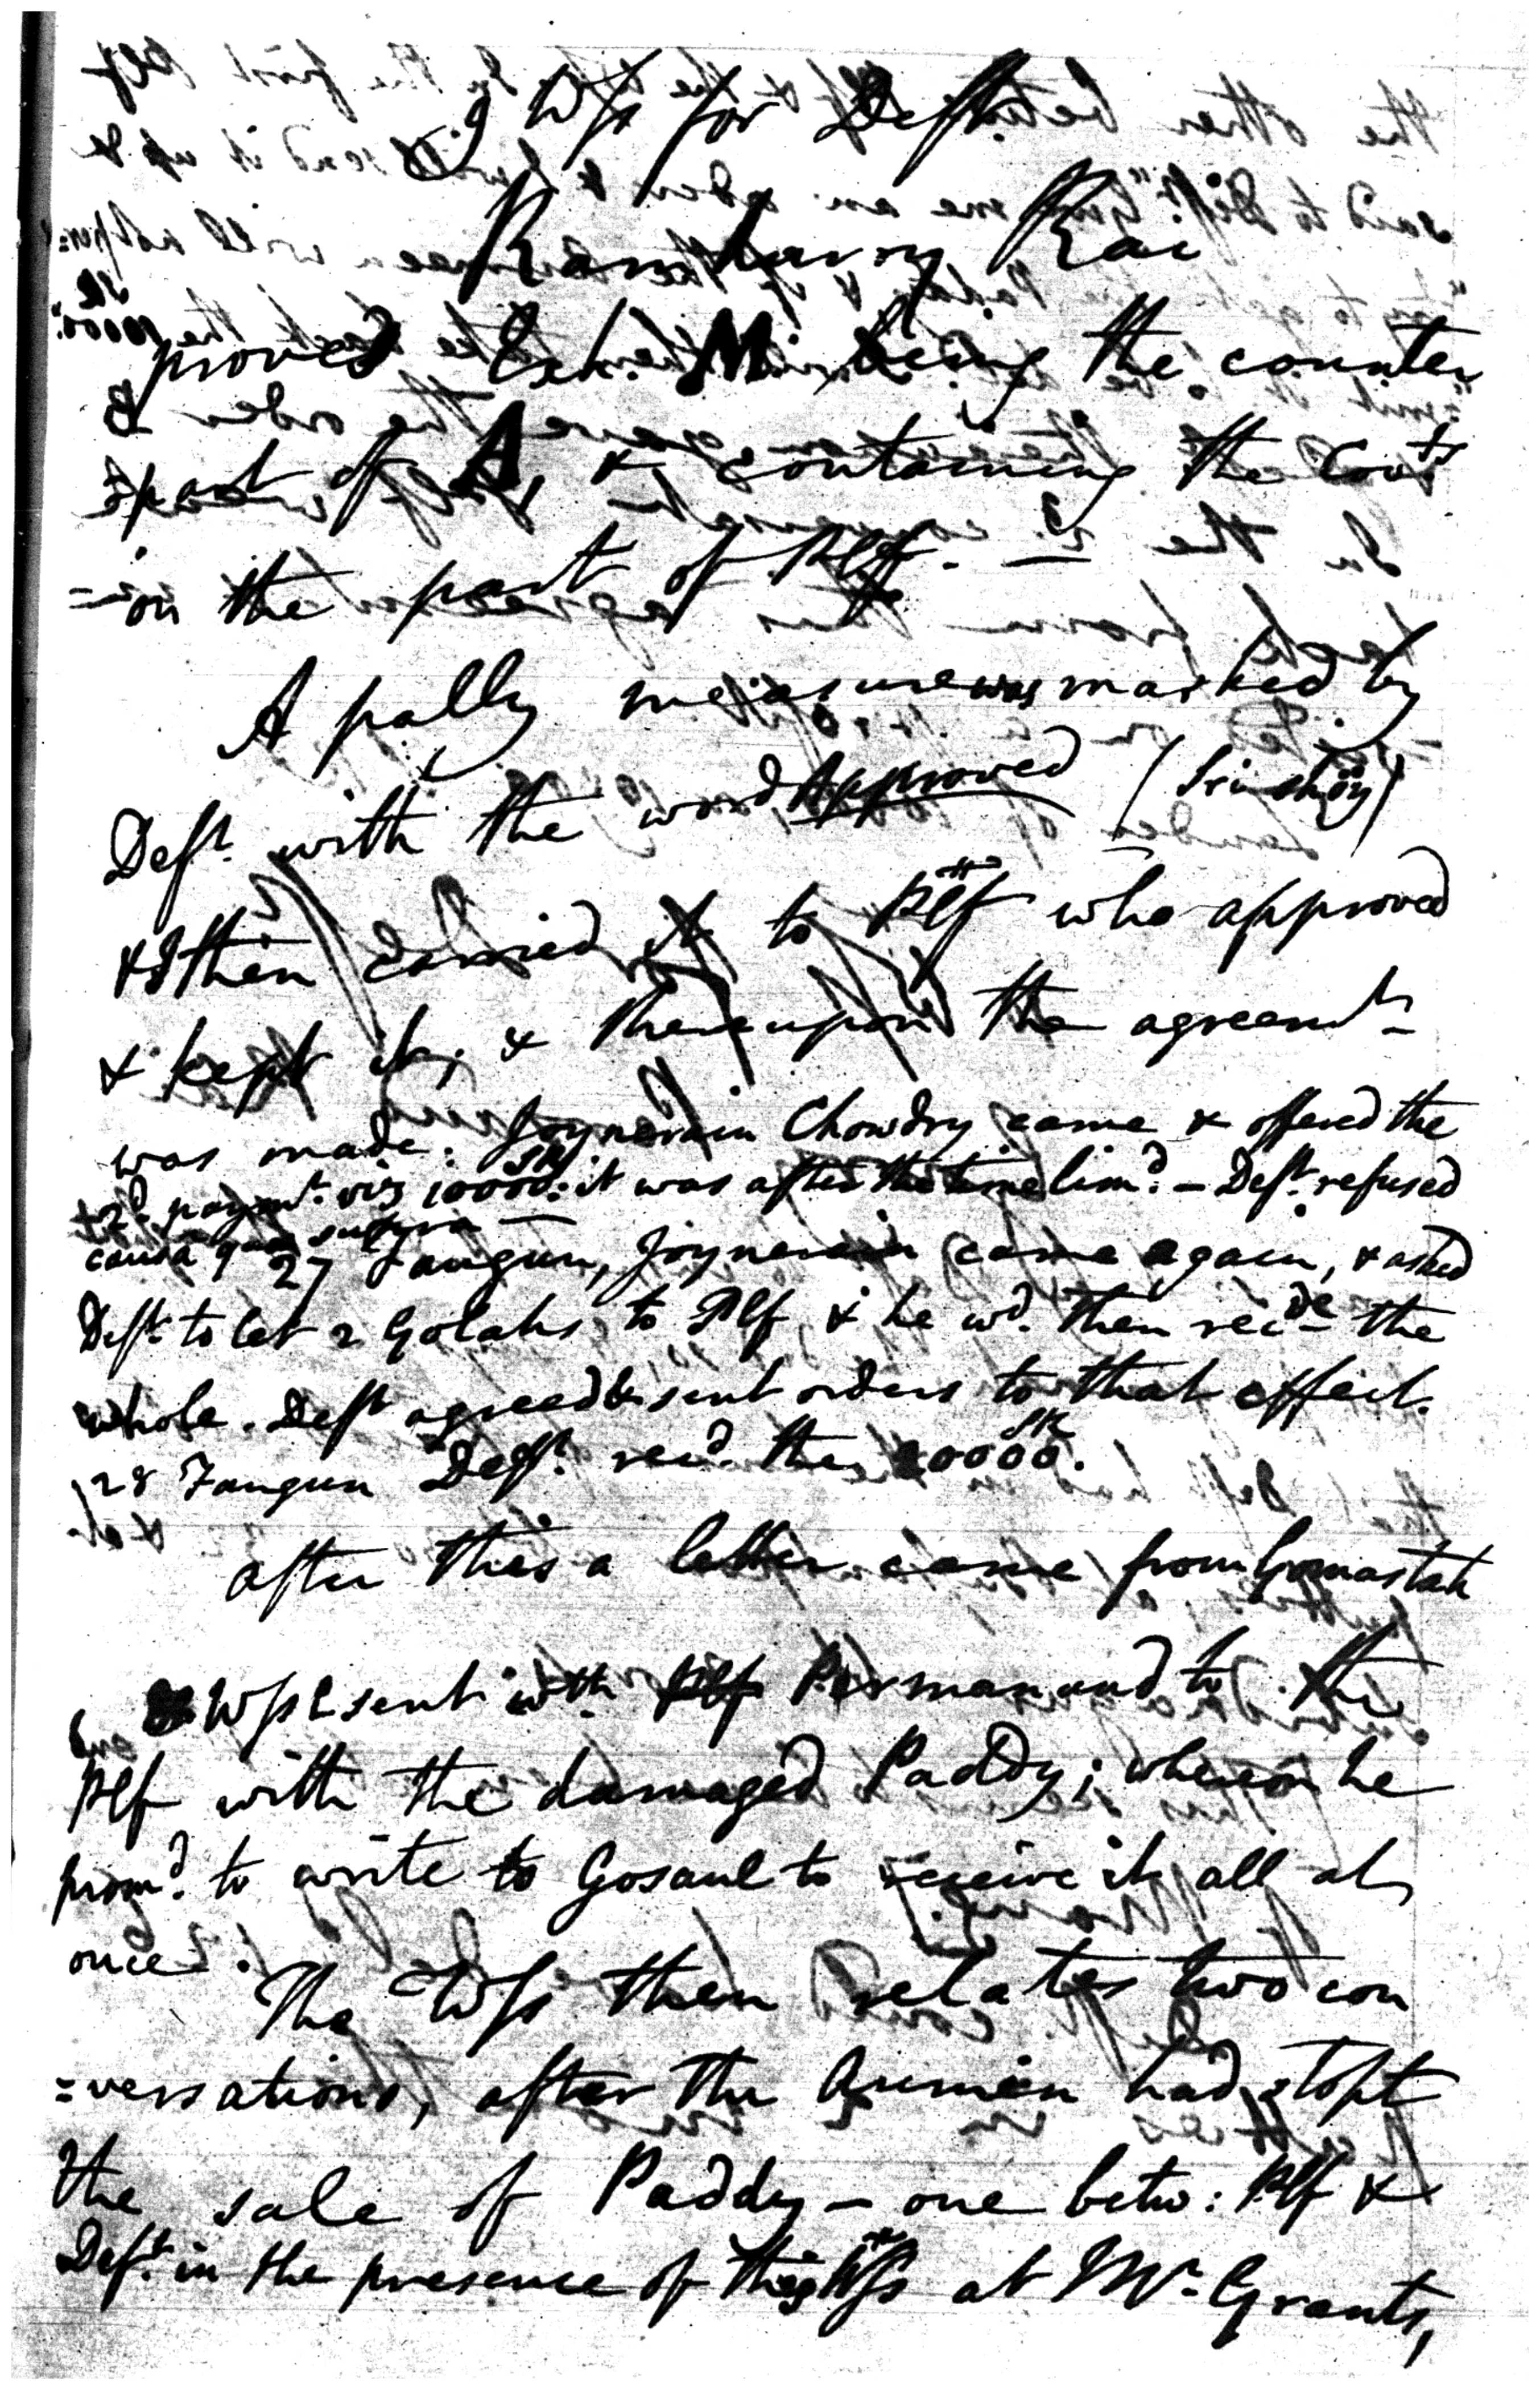 Wss for Deft.
Ramharry Rae
proves Exh. M, being the counter
part of A, & containing the Covts
=on the part of Plf. —
A pally measure was marked by
Deft. with the word Approved
& then carried it to Plf who approved
& kept it; & thereupon the agreemt
was made. Joynerain Chowdry came & offered the
2d. paymt. viz 10000 SR: it was after the time limd. — Deft. refused
causâ quâ supra —
27 Faugun, Joynerain came again, & asked
Deft. to let 2 Golahs to Plf & he wd. then recve the
whole. Deft agreed & sent orders to that effect.
28 Faugun Deft. recd. the 10000 SR.
after this a letter came from Gomastah
& Wss sent wth. Permanund to the
Plf with the damaged Paddy; whereon he
promd. to write to Gosaul to receive it all at
once.
The Wss then relates two con
=versations, after the Aumeen had stopt
the sale of Paddy — one betw: Plf &
Deft. in the presence of this Wss at Mr. Grants,